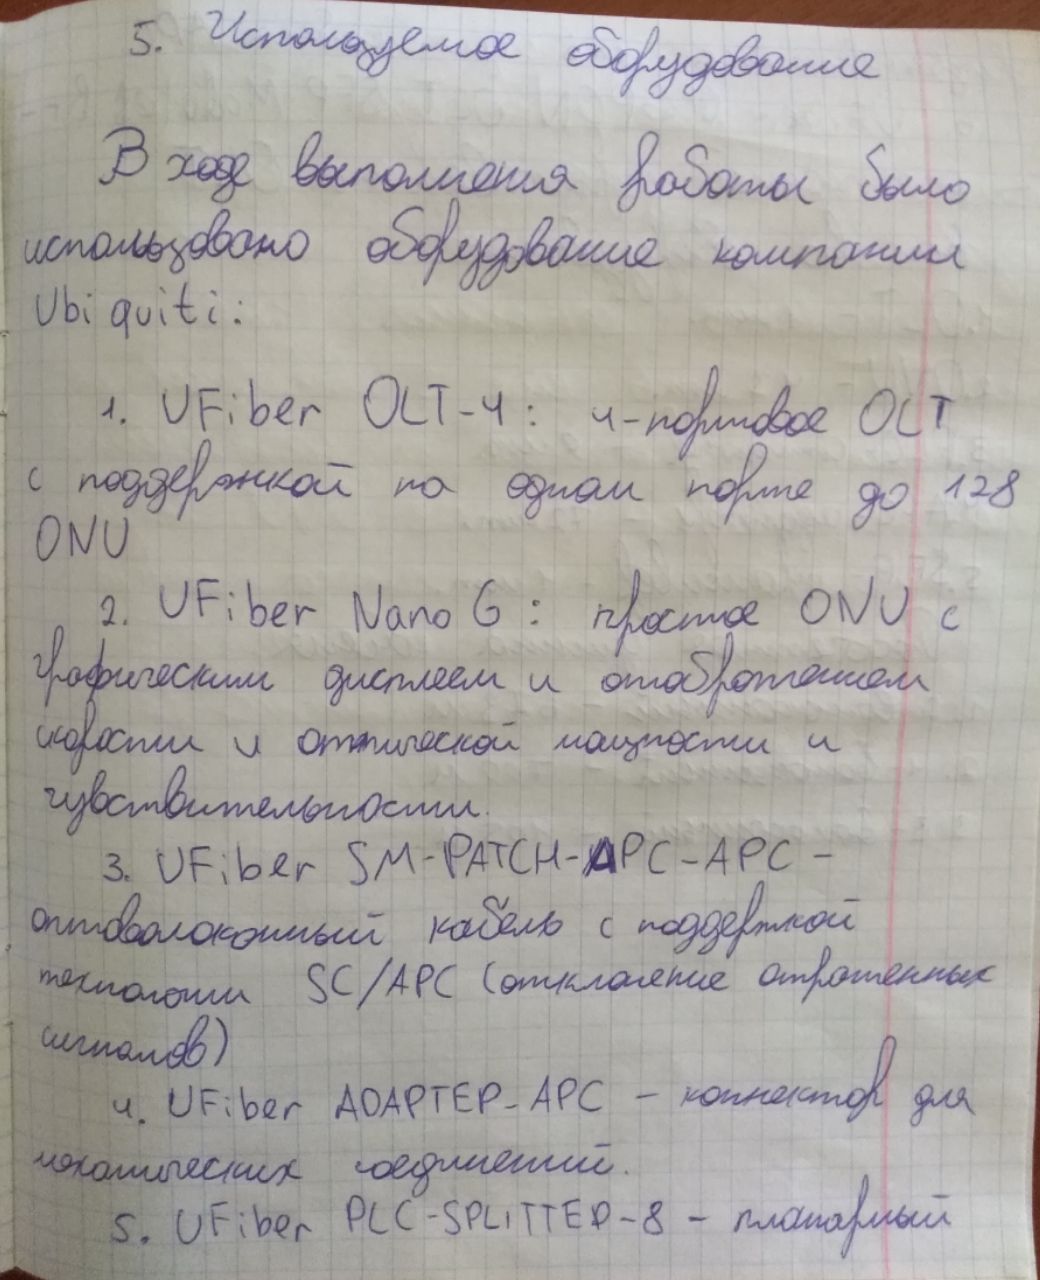 5. Используемое оборудование
В ходе выполнения работы было
использовано оборудование компании
Ubiquiti:
1. UFiber OLT-4: 4-портовое OLT
с поддержкой на одном порте до 128
ONU
2. UFiber Nano G: простое ONU с
графическим дисплеем и отображением
скорости и оптической мощности и
чувствительности.
3. UFiber SM-PATCH-APC-APC -
оптоволоконный кабель с поддержкой
технологии SC/APC (отклонение отраженных
сигналов)
4. UFiber ADAPTEP-APC - коннектор для
механических соединений.
5. UFiber PLC-SPLITTEP-8 - планарный